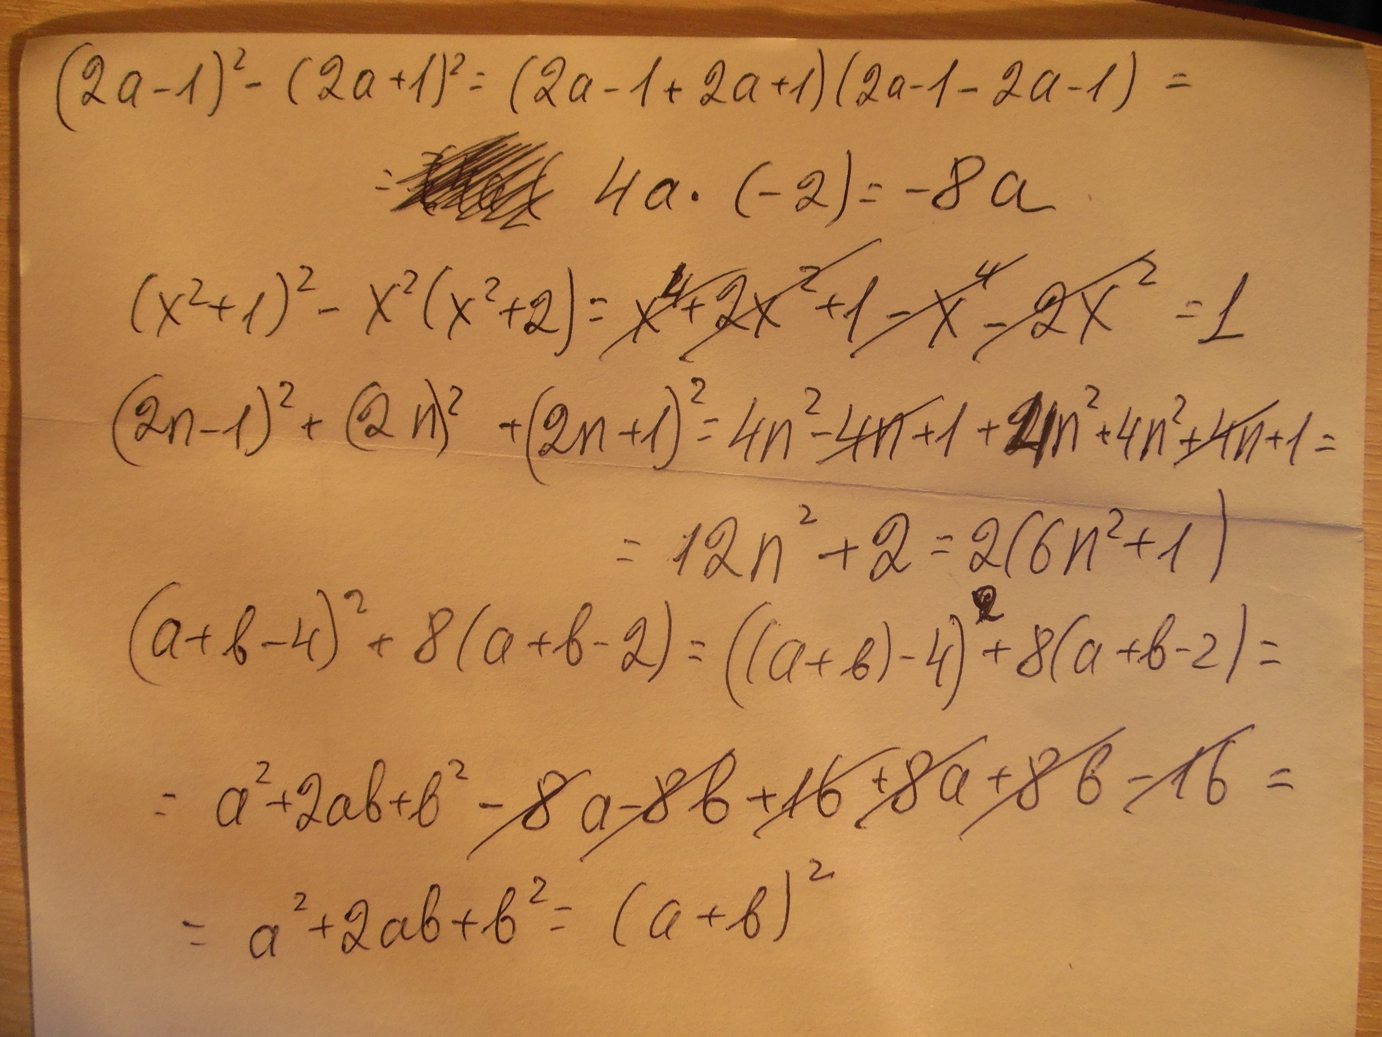 (2a-1)²-(2a+1)²=(2a-1+2a+1)(2a-1-2a-1)=
= 4a·(-2)=-8a
(x²+1)²-x²(x²+2)=x⁴+2x²+1-x⁴-2x²=1
(2n-1)²+(2n)²+(2n+1)²=4n²-4n+1+4n²+4n²+4n+1=
=12n²+2=2(6n²+1)
(a+b-4)²+8(a+b-2)=((a+b)-4)²+8(a+b-2)=
=a²+2ab+b²-8a-8b+16+8a+8b-16=
=a²+2ab+b²=(a+b)²